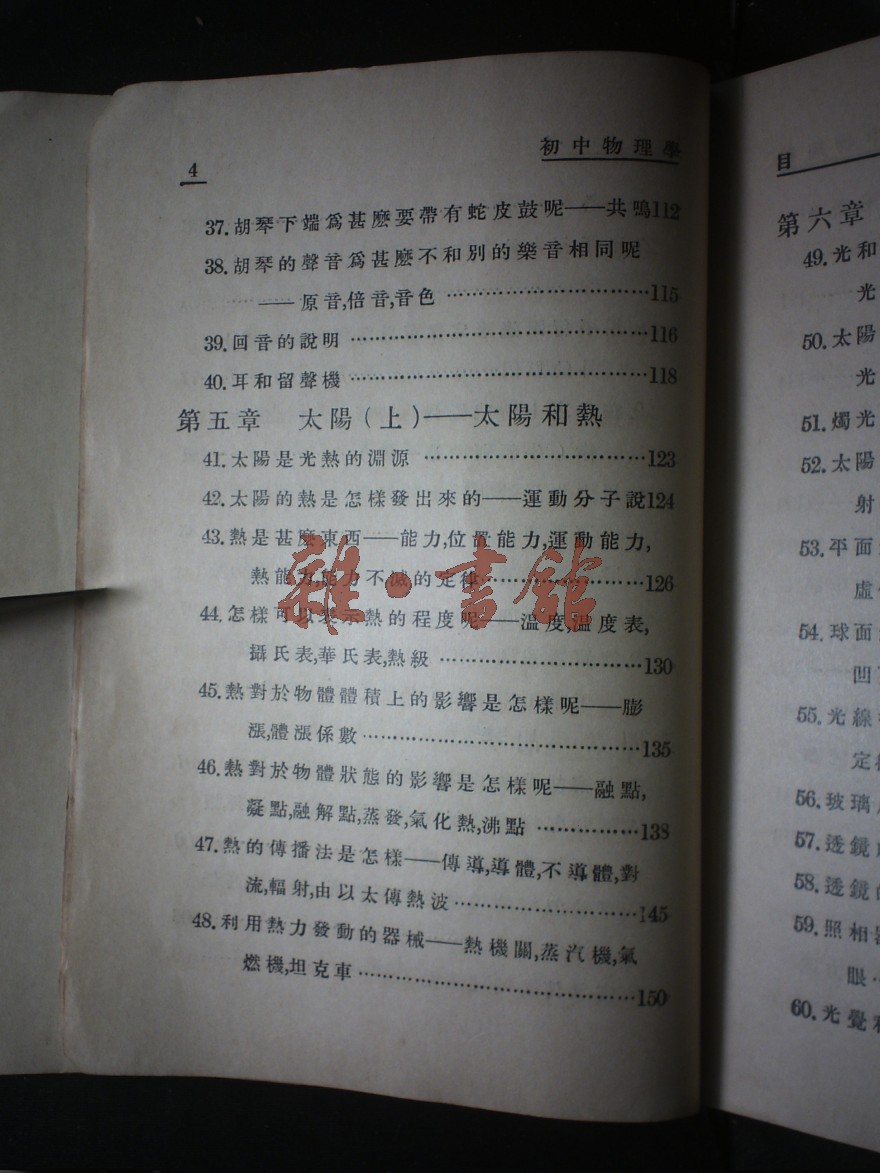 4
初中物理學
37.胡琴下端爲甚麽要帶有蛇皮鼓呢——共鳴112
38.胡琴的聲音爲甚麽不和別的樂音相同呢
——原音,倍音,音色 ……………………115
39.回音的說明 ……………………………116
40.耳和留聲機 ……………………………118
第五章 太陽(上)——太陽和熱
41.太陽是光熱的淵源 ……………………123
42.太陽的熱是怎樣發出來的——運動分子說124
43.熱是甚麽東西——能力,位置能力,運動能力,
熱能力,能力不滅的定律……………………126
44.怎樣可以表示熱的程度呢——温度,温度表,
攝氏表,華氏表,熱級 ……………………130
45.熱對於物體體積上的影響是怎樣呢——膨
漲,體漲係數……………………………135
46.熱對於物體狀態的影響是怎樣呢——融點,
凝點,融解點,蒸發,氣化熱,沸點 …………138
47.熱的傳播法是怎樣——傳導,導體,不導體,對
流,輻射,由以太傳熱波……………………145
48.利用熱力發動的器械——熱機關,蒸汽機,氣
燃機,坦克車……………………………150
雜·書館
目
第六章
49.光和
光
50.太陽
光
51.燭光
52.太陽
射
53.平面
虛
54.球面
凹
55.光線
定
56.玻璃
57.透鏡
58.透鏡
59.照相
眼…
60.光覺